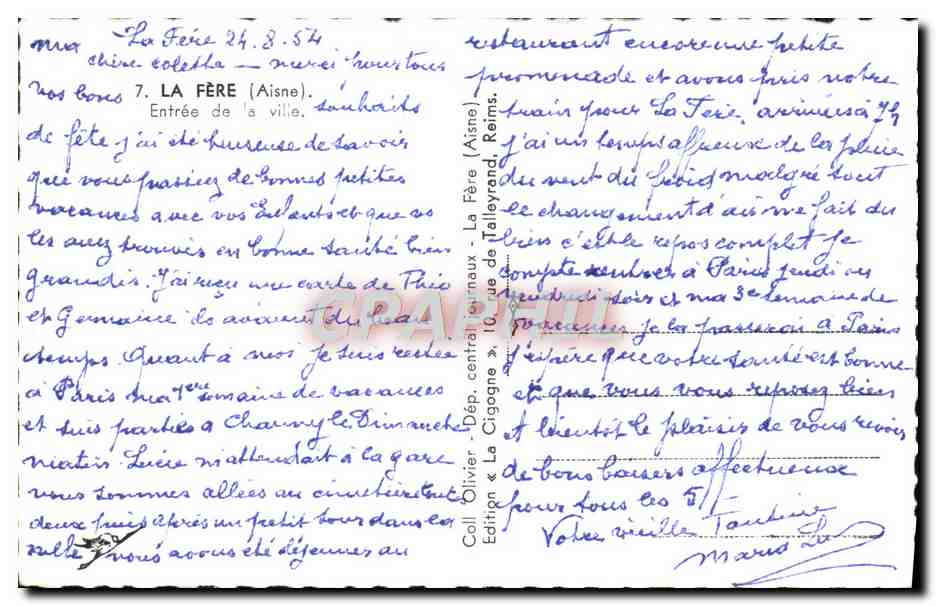 La Fère 24.8.54
ma chère Coletta — merci pour tous
vos bons souhaits
7. LA FÈRE (Aisne).
Entrée de la ville.
de fête j'ai été heureuse de savoir
que vous passiez de bonnes petites
vacances avec vos Enfants et que vs
les avez trouvés en bonne santé bien
grandis. J'ai reçu une carte de Théo
et Germaine ils avaient du beau
temps. Quant à moi je suis restée
à Paris ma 1ère semaine de vacances
et suis partie à Chauny le Dimanche
matin. Lucie m'attendait à la gare
nous sommes allées au cimetière toute
deux puis après un petit tour dans la
ville nous avons été déjeuner au
Coll Olivier - Dép. central journaux - La Fère (Aisne)
Edition « La Cigogne », 10, rue de Talleyrand, Reims.
restaurant encore une petite
promenade et avons pris notre
train pour La Fère, arrivées à 7h
j'ai un temps affreux de la pluie
du vent du froid malgré tout
le changement d'air me fait du
bien c'est le repos complet je
compte rentrer à Paris jeudi ou
vendredi soir et ma 3e semaine de
vacances je la passerai à Paris
J'espère que votre santé est bonne
et que vous vous reposez bien
A bientôt le plaisir de vous revoir
de bons baisers affectueux
pour tous les 5
Votre vieille Tantine
CPARHIU